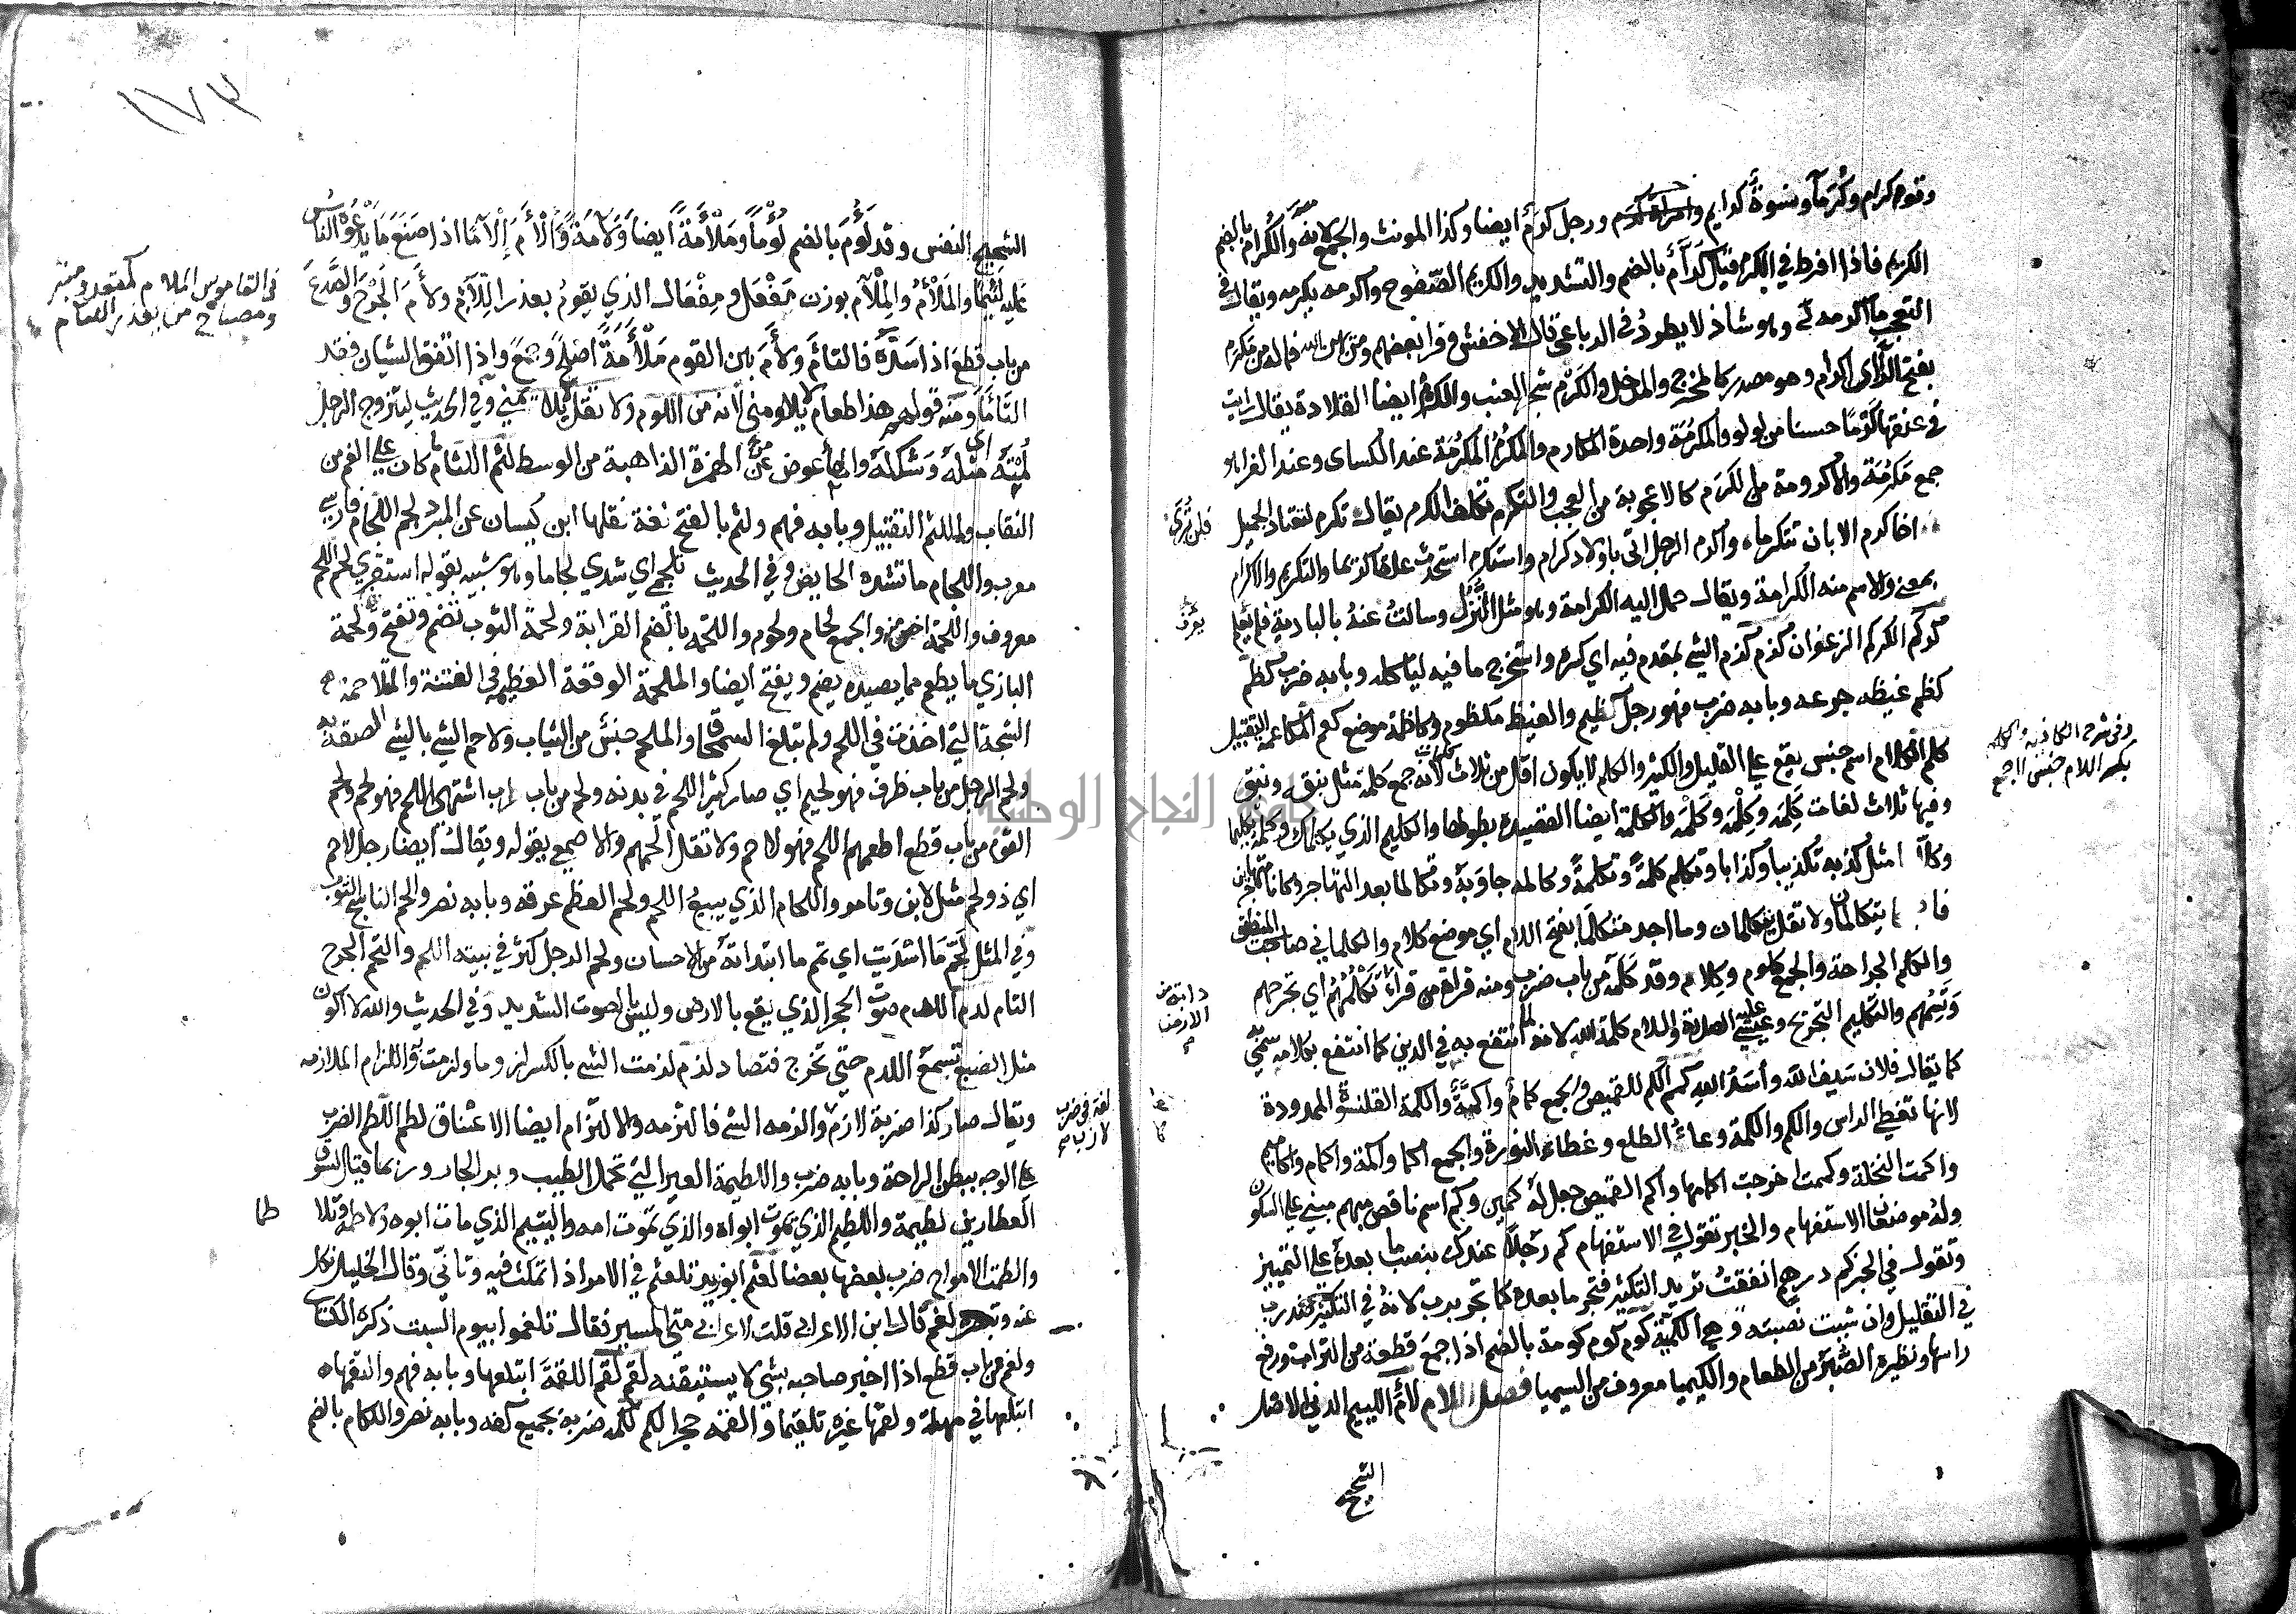 وقوم كرام وكرما ونسوة كرايم وامراة كرم ورجل كرم ايضا وكذا المونث والجمع لانه مصدر والكرام بالضم
الكريم فاذا افرط في الكرم قيل كرام بالضم والتشديد والكريم الصفوح واكرمه يكرمه ويقال في
التعجب ما اكرمه لي وهو شاذ لا يطرد في الرباعي قال الاخفش وقرا بعضهم ومن يهن الله فما له من مكرم
بفتح الراي اكرام وهو مصدر كالمخرج والمدخل والكرم شجر العنب والكرم ايضا القلادة يقال رايت
في عنقها كرما حسنا من لولو والمكرمة واحدة المكارم والمكرم المكرمة عند الكساى وعند الفرا هو
جمع مكرمة والاكرومة من الكرم كالاعجوبة من العجب والتكرم تكلف الكرم يقال تكرم لتعتاد الجميل فلن ترى
اخا كرم الا بان تتكرما واكرم الرجل اتى باولاد كرام واستكرم استحدث علقا كريما والتكريم والاكرام
بمعنى والاسم منه الكرامة ويقال حمل اليه الكرامة وهو مثل النزل وسالت عنه بالبادية فلم يعلم
يعرف
كركم الكركم الزعفران كزم كزم الشي بمقدم فيه اي كسره واستخرج ما فيه لياكله وبابه ضرب كظم
كظم غيظه جرعه وبابه ضرب فهو رجل كظيم والغيظ مكظوم وكاظمة موضع كعم المكاعمة التقبيل
كلم الكلام اسم جنس يقع علي القليل والكثير والكلم لا يكون اقل من ثلاث كلمات لانه جمع كلمة مثل نبقة ونبق
وفيها ثلاث لغات كلمة وكلمة وكلمة والكلمة ايضا القصيدة بطولها والكليم الذي يكلمك وكلمه تكليما
وكلاما مثل كذبه تكذيبا وكذابا وتكلم كلمة وتكلمة وكالمه جاوبه وتكالما بعد التهاجر وكانا متهاجرين
يتكالمان ولا تقل يتكلمان وما اجد متكلما بفتح اللام اي موضع كلام والكلماني صاحب المنطق
والكلم الجراحة والجمع كلوم وكلام وقد كلمه من باب ضرب ومنه قراة من قرا تكلمهم اي تجرحهم
وتسمهم والتكليم التجريح وعيسي عليه الصلاة والسلام كلمة الله لانه لما انتفع به في الدين كما انتفع بكلامه سمي به
كما يقال فلان سيف الله واسد الله كم الكم للقميص والجمع كمام واكمة والكمة القلنسوة المدورة
لانها تغطي الراس والكم والكمة وعاء الطلع وغطاء النورة والجمع اكمام واكمة واكمام واكاميم
واكمت النخلة وكممت اخرجت اكمامها واكم القميص جعل له كمين وكم اسم ناقص مبهم مبني علي السكون
وله موضعان الاستفهام والخبر تقول في الاستفهام كم رجلا عندك بنصب ما بعده علي التمييز
وتقول في الخبر كم درهم انفقت تريد التكثير فتجر ما بعده كما تجر برب لانه في التكثير نقيض رب
في التقليل وان شيت نصبته وهي الكمية كوم كوم كومة بالضم اذا جمع قطعة من التراب ورفع
راسها ونظيره الصبرة من الطعام والكيميا معروف من السيميا فصل اللام لام الليم الدني الاصل
الشحيح
وفي شرح الكافية الكلم
بكسر اللام جنس لا جمع
دابة من
الارض
١٧٣
الشحيح النفس وقد لوم بالضم لؤما وملأمة ايضا ولامة والأم إلآما اذا صنع ما يدعوه الناس
عليه لئيما والملأم والملآم بوزن مفعل ومفعال الذي يقوم بعذر اللئام ولأم الجرح والصدع
من باب قطع اذا سده فالتأم ولأم بين القوم ملأمة اصلح وجمع واذا اتفق الشيان فقد
التأما ومنه قولهم هذا طعام لا يلاومني لانه من اللوم ولا تقل يلايمني وفي الحديث ليتزوج الرجل
لمته اي مثله وشكله والها عوض عن الهمزة الذاهبة من الوسط لثم اللثام ما كان علي الفم من
النقاب واللثم التقبيل وبابه فهم ولثم بالفتح لغة نقلها ابن كيسان عن المبرد لجم اللجام فارسي
معرب واللجام ما تشده الحايض وفي الحديث تلجمي اي شدي لجاما وهو شبيه بقوله استثفري لحم اللحم
معروف واللحمة اخص منه والجمع لحام ولحوم واللحمة بالضم القرابة ولحمة الثوب تضم وتفتح ولحمة
البازي ما يطعم مما يصيده يضم ويفتح ايضا والملحمة الوقعة العظيمة في الفتنة والملاحمة
الشجة التي اخذت في اللحم ولم تبلغ السمحاق والملحم جنس من الثياب ولاحم الشي بالشي الصقه به
ولحم الرجل من باب ظرف فهو لحيم اي صار كثير اللحم في بدنه ولحم من باب طرب اشتهى اللحم فهو لحم ولحم
القوم من باب قطع اطعمهم اللحم فهو لاحم ولا تقل الحمهم والاصمعي يقوله ويقال ايضا رجل لاحم
اي ذو لحم مثل لابن وتامر واللحام الذي يبيع اللحم ولحم العظم عرقه وبابه نصر والحم الناسج الثوب
وفي المثل لحم ما اسديت اي تمم ما ابتداته من الاحسان ولحم الرجل كثر في بيته اللحم والتحم الجرح
التام لدم اللدم صوت الحجر الذي يقع بالارض وليس بالصوت الشديد وفي الحديث والله لا اكون
مثل الضبع تسمع اللدم حتى تخرج فتصاد لزم لزمت الشي بالكسر لزوما ولزمت به واللزام الملازمه
ويقال صار كذا ضربة لازم والزمه الشي فالتزمه والالتزام ايضا الاعتناق لطم اللطم الضرب
علي الوجه ببطن الراحة وبابه ضرب واللطيمة العير التي تحمل الطيب وبر التجار وربما قيل لسوق
العطارين لطيمة واللطيم الذي يموت ابواه والذي تموت امه واليتيم الذي مات ابوه ولاطمه وتلاطما
والتطمت الامواج ضرب بعضها بعضا لعثم ابو زيد تلعثم في الامر اذا تمكث فيه وتانى وقال الخليل نكل
عنه وتبصره لغم قال ابن الاعرابي قلت لاعرابي متى المسير فقال تلغموا بيوم السبت ذكره الكساى
ولغم من باب قطع اذا اخبر صاحبه بشي لا يستيقنه لقم لقم اللقمة ابتلعها وبابه فهم والتقمها
ابتلعها في مهلة ولقمها غيره تلقيما والقمه حجرا لكم لكمه ضربه بجميع كفه وبابه نصر واللكام بالضم
في القاموس الملام كمقعد ومنبر
ومصباح من يعذر اللئام
جامعة النجاح الوطنية